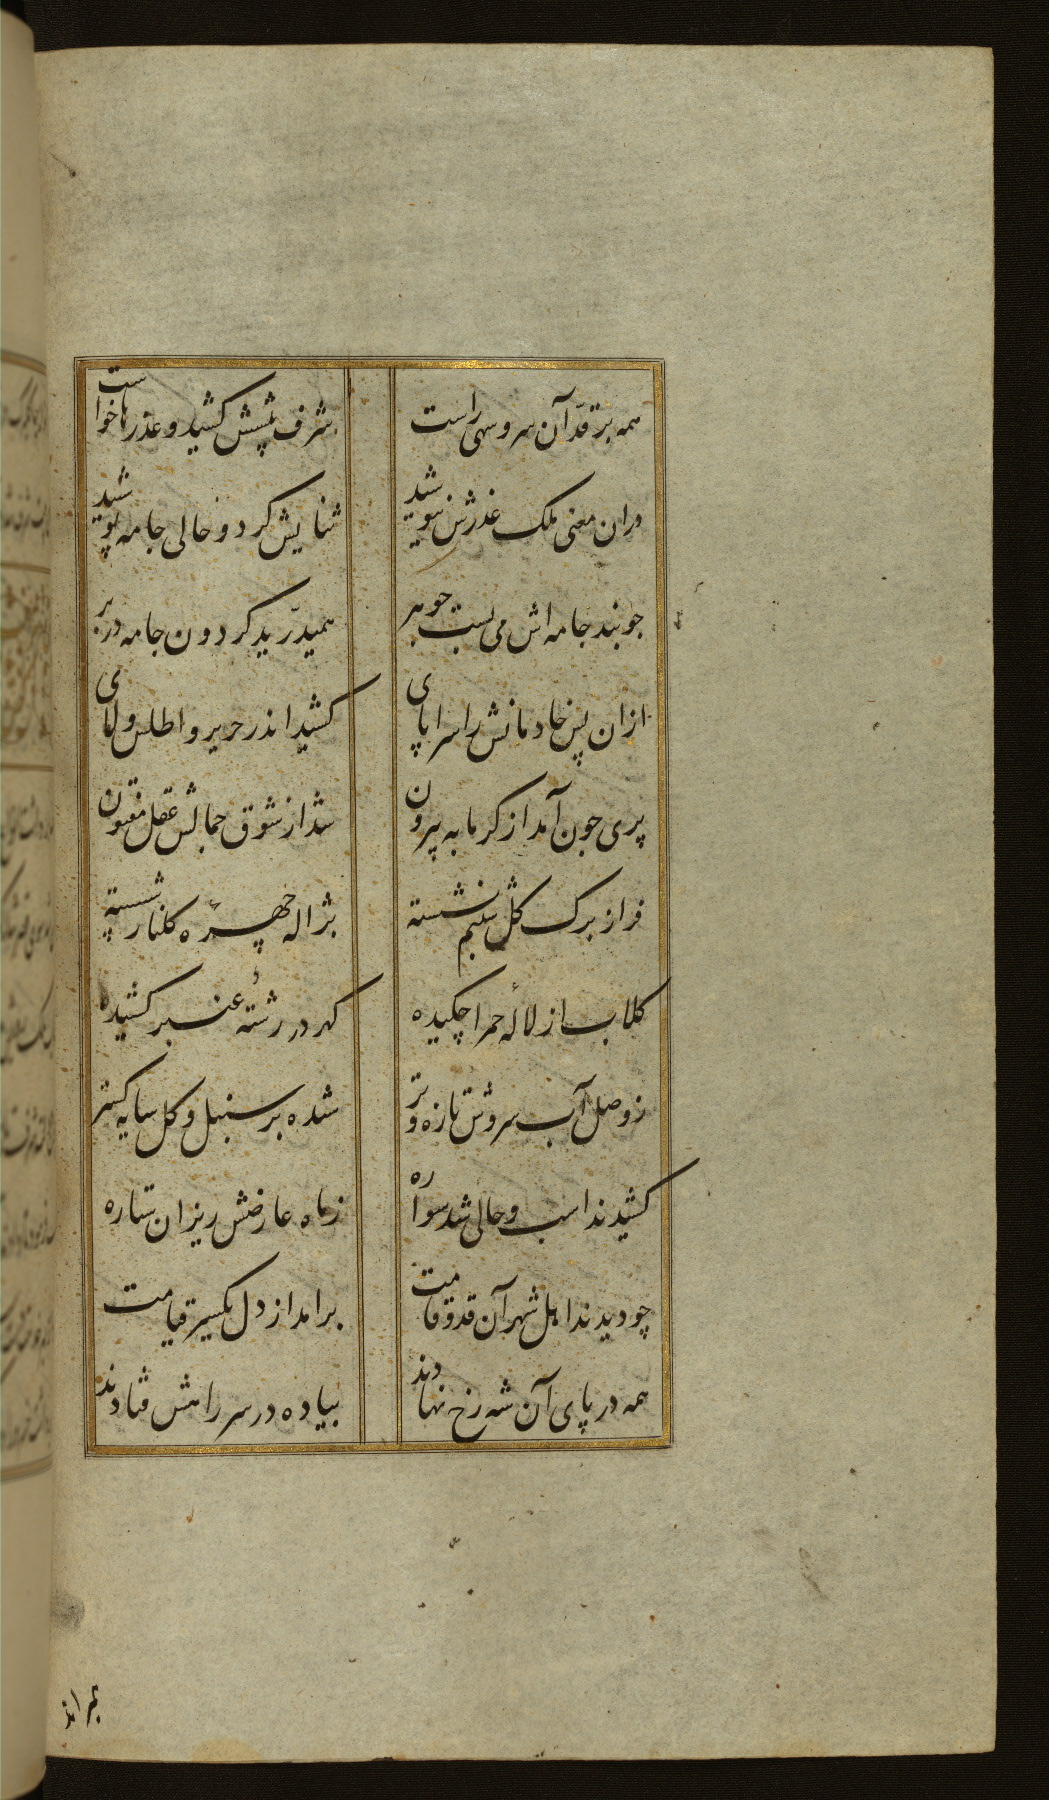 همه بر قدّ آن سرو سهی راست
شرف پیشش کشید و عذرها خواست
دران معنی ملک عذرش نیوشید
ثنایش کرد و حالی جامه پوشید
جو بند جامه اش می بست جوهر
همیدرّید کردون جامه در بر
ازان پس خادمانش را سراپای
کشید اندر حریر و اطلس و لای
پری جون آمد از کرمابه بیرون
شد از شوق جمالش عقل مفتون
فراز برک کل شبنم نشسته
بژاله چهرهٔ کلنار شسته
کلاب از لالهٔ حمرا چکیده
کهر در رشتهٔ عنبر کشیده
ز وصل آب سروش تازه و تر
شده بر سنبل و کل سایه کستر
کشیدند اسب و حالی شد سواره
ز ماه عارضش ریزان ستاره
چو دیدند اهل شهر آن قد و قامت
برامد از دل یکسر قیامت
همه در پای آن شه رخ نهادند
بیاده در سر راهش فتادند